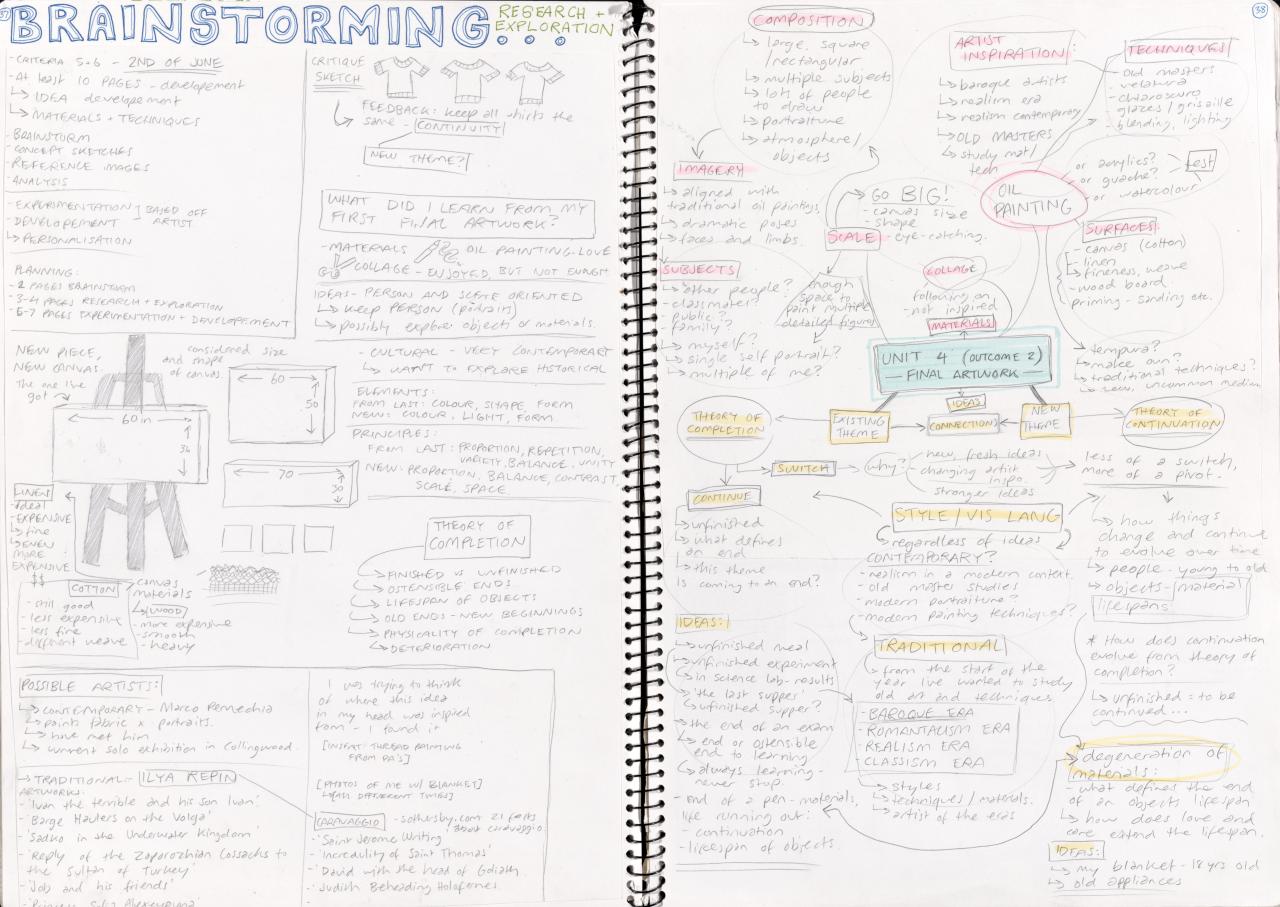 37
BRAINSTORMING...
RESEARCH +
EXPLORATION
-CRITERIA 5+6 - 2ND OF JUNE
-At least 10 PAGES - developement
↳ IDEA developement
↳ MATERIALS + TECHNIQUES
-BRAINSTORM
-CONCEPT SKETCHES
-REFERENCE IMAGES
-ANALYSIS
-EXPERIMENTATION
-DEVELOPEMENT
BASED OFF
ARTIST
↳ PERSONALISATION
PLANNING:
-2 PAGES BRAINSTORM
-3-4 PAGES RESEARCH + EXPLORATION
-6-7 PAGES EXPERIMENTATION + DEVELOPEMENT
CRITIQUE
SKETCH
FEEDBACK: keep all shirts the
same - CONTINUITY
NEW THEME?
WHAT DID I LEARN FROM MY
FIRST FINAL ARTWORK?
-MATERIALS OIL PAINTING-LOVE
COLLAGE - ENJOYED, BUT NOT ENOUGH
IDEAS- PERSON AND SCENE ORIENTED
↳ KEEP PERSON (portraits)
↳ possibly explore objects or materials.
-CULTURAL - VERY CONTEMPORARY
↳ WANT TO EXPLORE HISTORICAL
ELEMENTS:
FROM LAST: COLOUR, SHAPE, FORM
NEW: COLOUR, LIGHT, FORM
PRINCIPLES:
FROM LAST: PROPORTION, REPETITION,
VARIETY, BALANCE, UNITY
NEW: PROPORTION, BALANCE, CONTRAST,
SCALE, SPACE.
NEW PIECE,
NEW CANVAS.
The one I've
got
considered size
and shape
of canvas.
60 in
36
60
50
70
30
LINEN
-ideal
-EXPENSIVE
↳ fine
↳ EVEN
MORE
EXPENSIVE
$$
COTTON
-still good
-less expensive
-less fine
-different weave
canvas
materials
↳ WOOD
-more expensive
-smooth
-heavy
THEORY OF
COMPLETION
FINISHED VS UNFINISHED
OSTENSIBLE ENDS
LIFESPAN OF OBJECTS
OLD ENDS - NEW BEGINNINGS
PHYSICALITY OF COMPLETION
↳ DETERIORATION
POSSIBLE ARTISTS:
↳ CONTEMPORARY - Marco Pennechia
↳ paints fabric x portraits.
↳ have met him
↳ current solo exhibition in Collingwood.
→ TRADITIONAL- ILYA REPIN
ARTWORKS:
-'Ivan the terrible and his son Ivan'
-'Barge Haulers on the Volga'
-'Sadko in the Underwater Kingdom'
-'Reply of the Zaporozhian Cossacks to
the Sultan of Turkey'
-'Job and his friends'
I was trying to think
of where this idea
in my head was inspired
from - I found it
[INSERT THREAD PAINTING
FROM PA'S]
[PHOTOS OF ME W/ BLANKET]
CARAVAGGIO - sothesby.com 21 facts
about caravaggio.
-'Saint Jerome Writing'
-'Incredulity of Saint Thomas'
-'David with the head of Goliath
-'Judith Beheading Holofernes.
38
COMPOSITION
↳ large, square
/rectangular
↳ multiple subjects
↳ lots of people
to draw
↳ portraiture
↳ atmosphere/
objects
ARTIST
INSPIRATION:
↳ baroque artists
↳ realism era
↳ realism contemporary
↳ OLD MASTERS
↳ study mat/
tech
TECHNIQUES/
Old masters
-velatura
-chiaroscuro
glazes/grisaille
-blending, lighting
IMAGERY
↳ aligned with
traditional oil paintings
↳ dramatic poses
↳ faces and limbs.
GO BIG!
-canvas size
-shape
-eye-catching.
SCALE
OIL
PAINTING
or acrylics?
or guache?
or watercolour
test
SURFACES:
-canvas (cotton)
-linen
↳ fineness, weave
-wood board
priming - sanding etc.
SUBJECTS
↳ other people?
-classmates?
-public?
-family?
↳ myself?
↳ single self portrait?
↳ multiple of me?
enough
space to
paint multiple
detailed figures
COLLAGE
following on
-not inspired
MATERIALS
↳ tempura?
↳ make own?
↳ traditional techniques?
↳ new, uncommon medium
UNIT 4 (OUTCOME 2)
— FINAL ARTWORK —
IDEAS
CONNECTIONS
EXISTING
THEME
NEW
THEME
THEORY OF
COMPLETION
THEORY OF
CONTINUATION
SWITCH
why?
new, fresh ideas
changing artist
inspo.
stronger ideas
less of a switch,
more of a pivot.
CONTINUE
↳ unfinished
↳ what defines
an end
↳ this theme
is coming to an end?
STYLE/VIS LANG
↳ regardless of ideas
CONTEMPORARY?
-realism in a modern context.
-old master studies
-modern portraiture?
-modern painting techniques?
↳ how things
change and continue
to evolve over time
↳ people - young to old
↳ objects - material
lifespans
IDEAS:
↳ unfinished meal
↳ unfinished experiment
↳ in science lab - results
↳ 'the last supper'
↳ unfinished supper?
↳ the end of an exam
↳ end or ostensible
end to learning
↳ always learning -
never stop.
-end of a pen - materials,
life running out:
-continuation
-lifespan of objects.
TRADITIONAL
↳ from the start of the
year I've wanted to study
old art and techniques
-BAROQUE ERA
-ROMANTASISM ERA
-REALISM ERA
-CLASSISM ERA
↳ styles
↳ techniques/materials.
↳ artist of the eras
* How does continuation
evolve from theory of
completion?
↳ unfinished = to be
continued...
degeneration of
materials:
-what defines the end
of an objects lifespan
↳ how does love and
care extend the lifespan.
IDEAS:
↳ my blanket - 18 yrs old
↳ old appliances